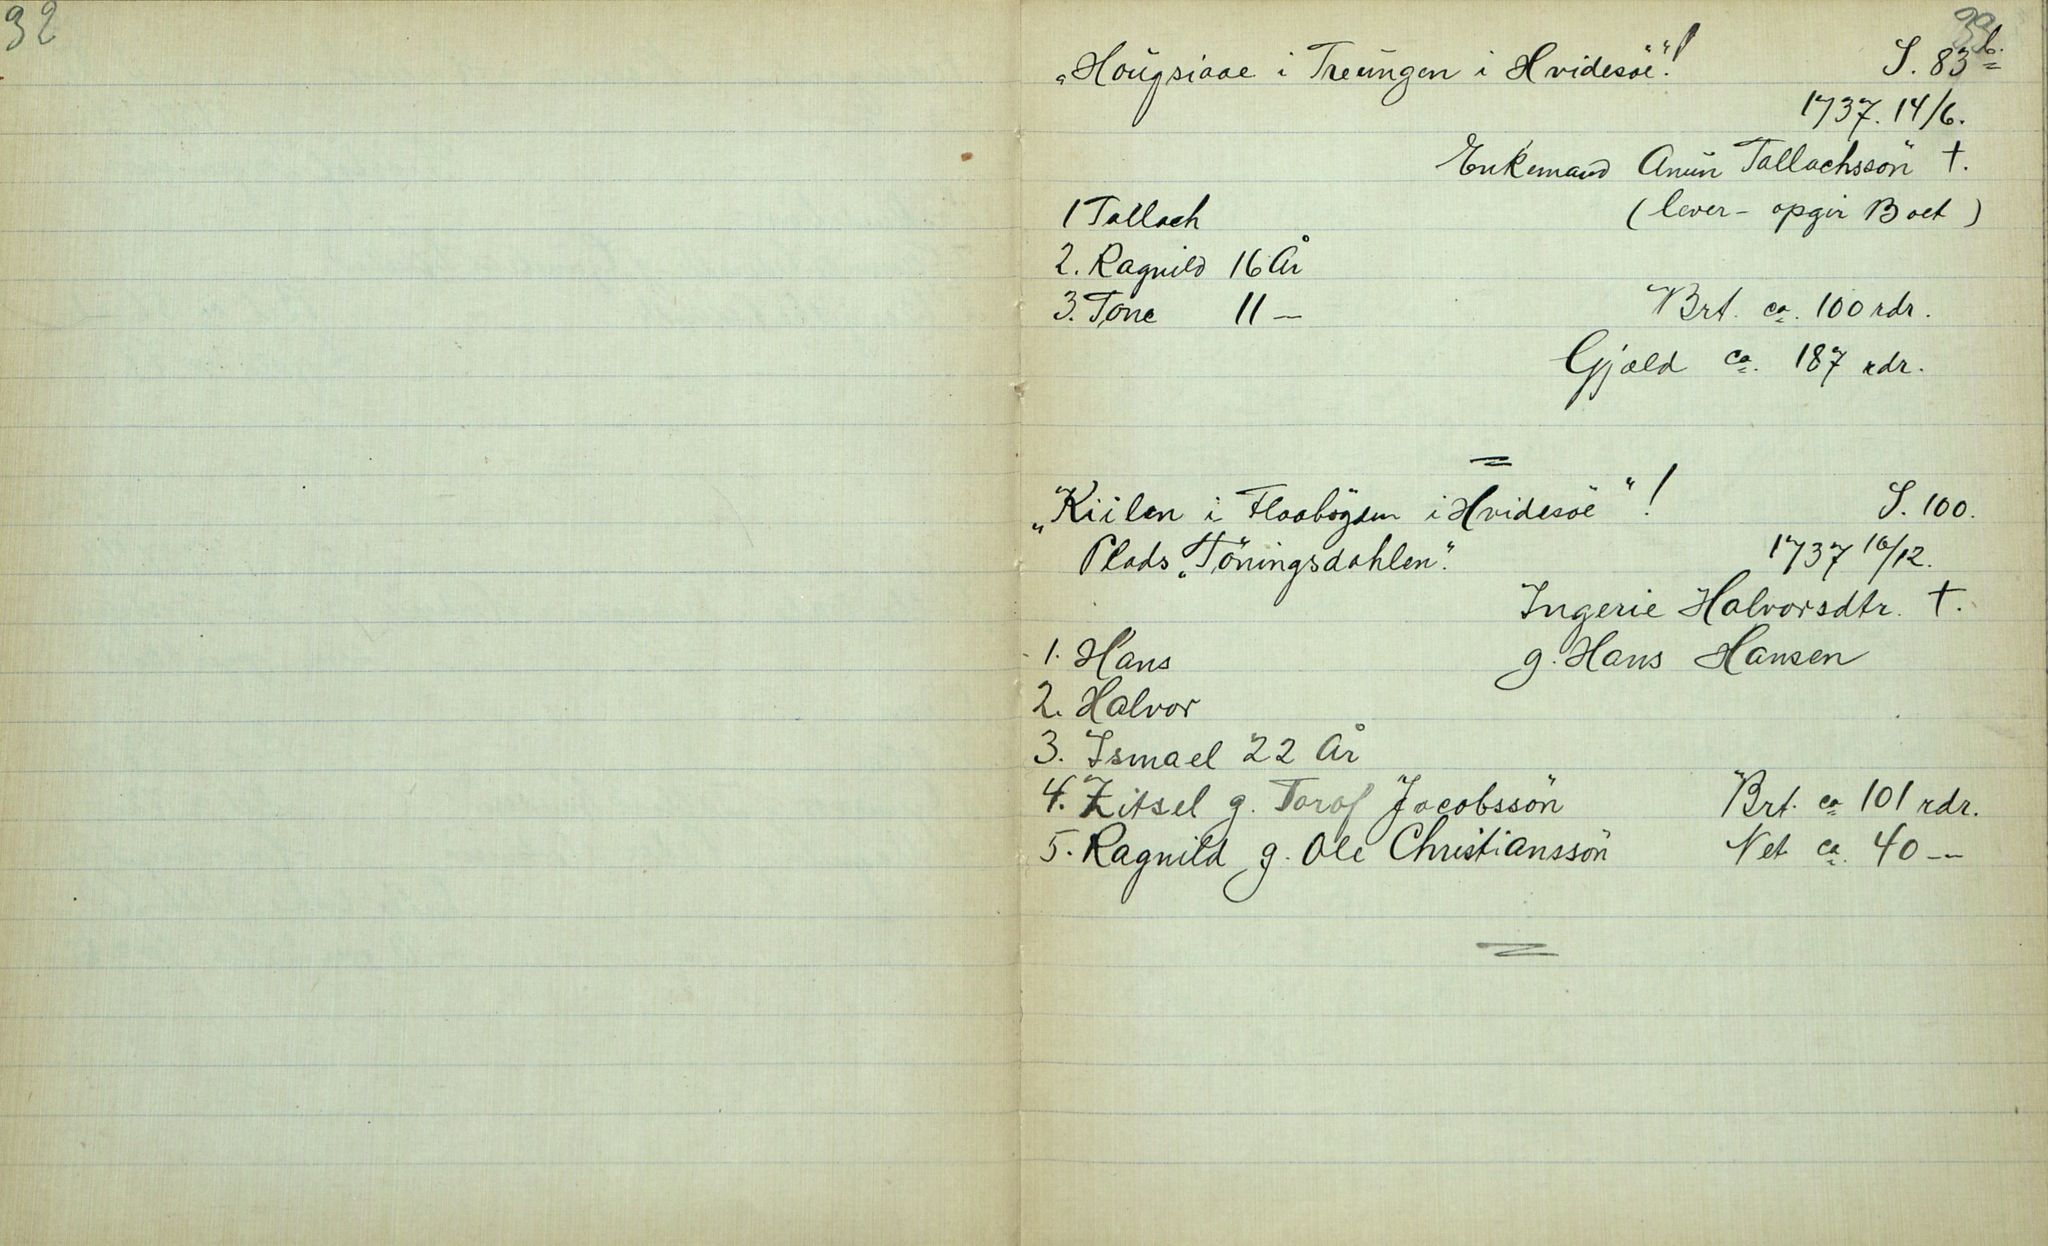 32
33
„Hoŭgsiaae i Treŭngen i Hvidesöe“! S. 83 b.
1737. 14/6.
Enkemand Anŭn Tallachssön †.
1 Tallach (lever - opgir Boet)
2. Ragnild 16 År
3. Tone 11 — Brt. ca. 100 rdr.
Gjæld ca. 187 rdr.
„Kiilen i Flaabögden i Hvidesöe“! S. 100.
Plads „Töningsdahlen“. 1737 10/12.
Ingerie Halvorsdtr. †.
1. Hans g. Hans Hansen
2. Halvor
3. Ismael 22 År
4. Zitsel g. Torof Jacobssön Brt. ca 101 rdr.
5. Ragnild g. Ole Christianssön Net ca. 40 —